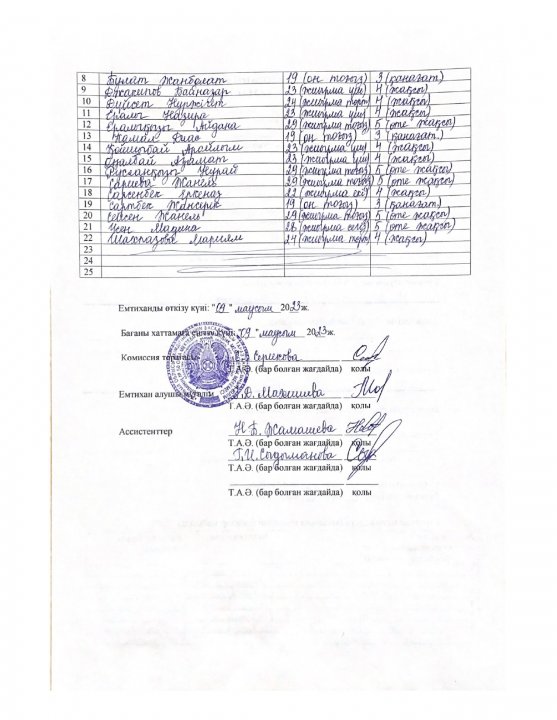 8 Булат Жанболат 19 (он тоғыз) 3 (қанағат)
9 Джасипов Байназар 23 (жиырма үш) 4 (жақсы)
10 Дүйсет Нұржігіт 24 (жиырма төрт) 4 (жақсы)
11 Ералы Назира 23 (жиырма үш) 4 (жақсы)
12 Ералықызы Айдана 29 (жиырма тоғыз) 5 (өте жақсы)
13 Камал Дияс 19 (он тоғыз) 3 (қанағат)
14 Қойшыбай Арсылғым 23 (жиырма үш) 4 (жақсы)
15 Оңалбай Арамат 23 (жиырма үш) 4 (жақсы)
16 Русланқызы Нұрай 29 (жиырма тоғыз) 5 (өте жақсы)
17 Сариева Жанель 29 (жиырма тоғыз) 5 (өте жақсы)
18 Сарсенбек Еркеназ 22 (жиырма екі) 4 (жақсы)
19 Сартбек Жансерік 19 (он тоғыз) 3 (қанағат)
20 Сейсен Жанель 29 (жиырма тоғыз) 5 (өте жақсы)
21 Усен Мадина 28 (жиырма сегіз) 5 (өте жақсы)
22 Шахпазова Мариям 24 (жиырма төрт) 4 (жақсы)
23
24
25
Емтиханды өткізу күні: "09" маусым 2023ж.
Бағаны хаттамаға енгізу күні: "09" маусым 2023ж.
Комиссия төрағасы Серикова
Т.А.Ә. (бар болған жағдайда) қолы
Емтихан алушы мұғалім
Т.А.Ә. (бар болған жағдайда) қолы
Ассистенттер Н.Б. Жамашева
Т.А.Ә. (бар болған жағдайда) қолы
Г.И. Сыдыманова
Т.А.Ә. (бар болған жағдайда) қолы
Т.А.Ә. (бар болған жағдайда) қолы